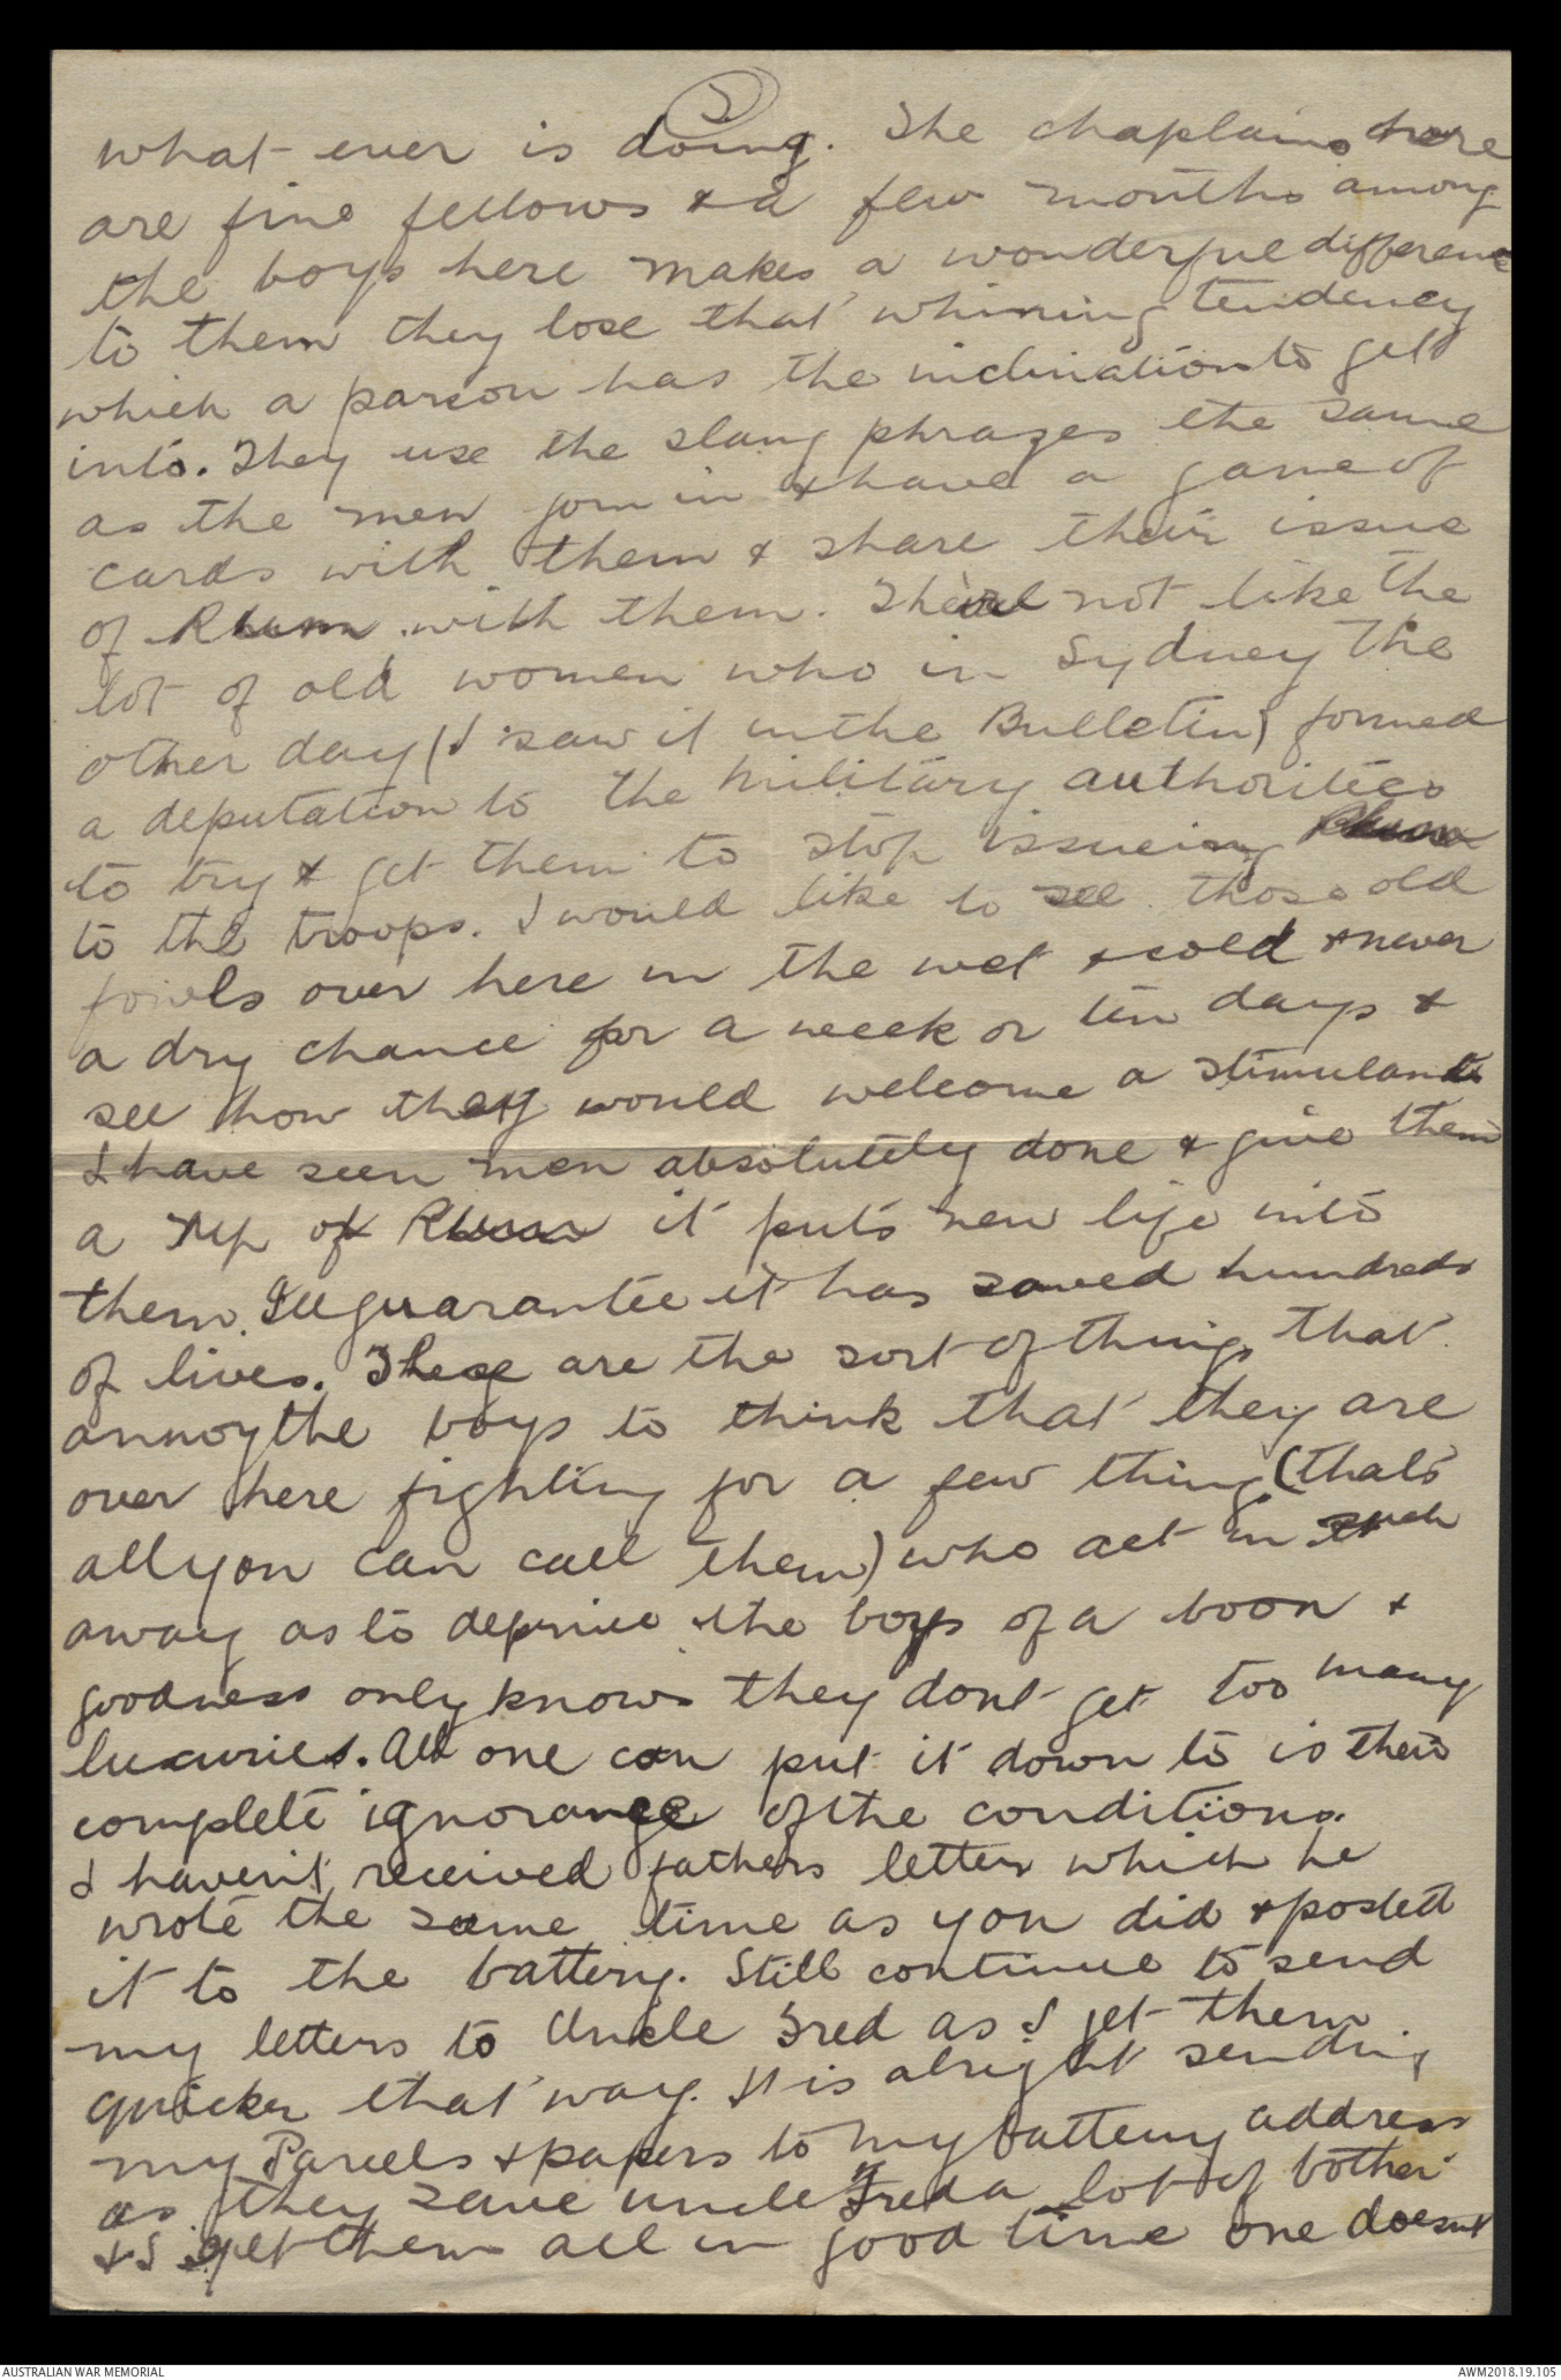 what ever is doing. The chaplains here
are fine fellows & a few months among
the boys here makes a wonderful difference
to them they lose that whining tendency
which a parson has the inclination to get
into. They use the slang phrazes the same
as the men join in & have a game of
cards with them & share their issue
of Rhum with them. not like the
lot of old women who in Sydney the
other day (I saw it in the Bulletin) formed
a deputation to the military authorities
to try & get them to stop issueing Rhum
to the troops. I would like to see those old
fowls over here in the wet & cold & never
a dry chance for a week or ten days &
see how they would welcome a stimulant
I have seen men absolutely done & give them
a nip of Rhum it puts new life into
them. Ill guarantee it has saved hundreds
of lives. These are the sort of things that
annoy the boys to think that they are
over here fighting for a few things (thats
all you can call them) who act in such
away as to deprive the boys of a boon &
goodness only knows they dont get too many
luxuries. All one can put it down to is their
complete ignorance of the conditions.
I havent received fathers letter which he
wrote the same time as you did & posted
it to the battery. Still continue to send
my letters to Uncle Fred as I get them
quicker that way. It is alright sending
my Parcels & papers to my battery address
as they save uncle Fred a lot of bother
& I get them all in good time one doesnt
AUSTRALIAN WAR MEMORIAL
AWM2018.19.105